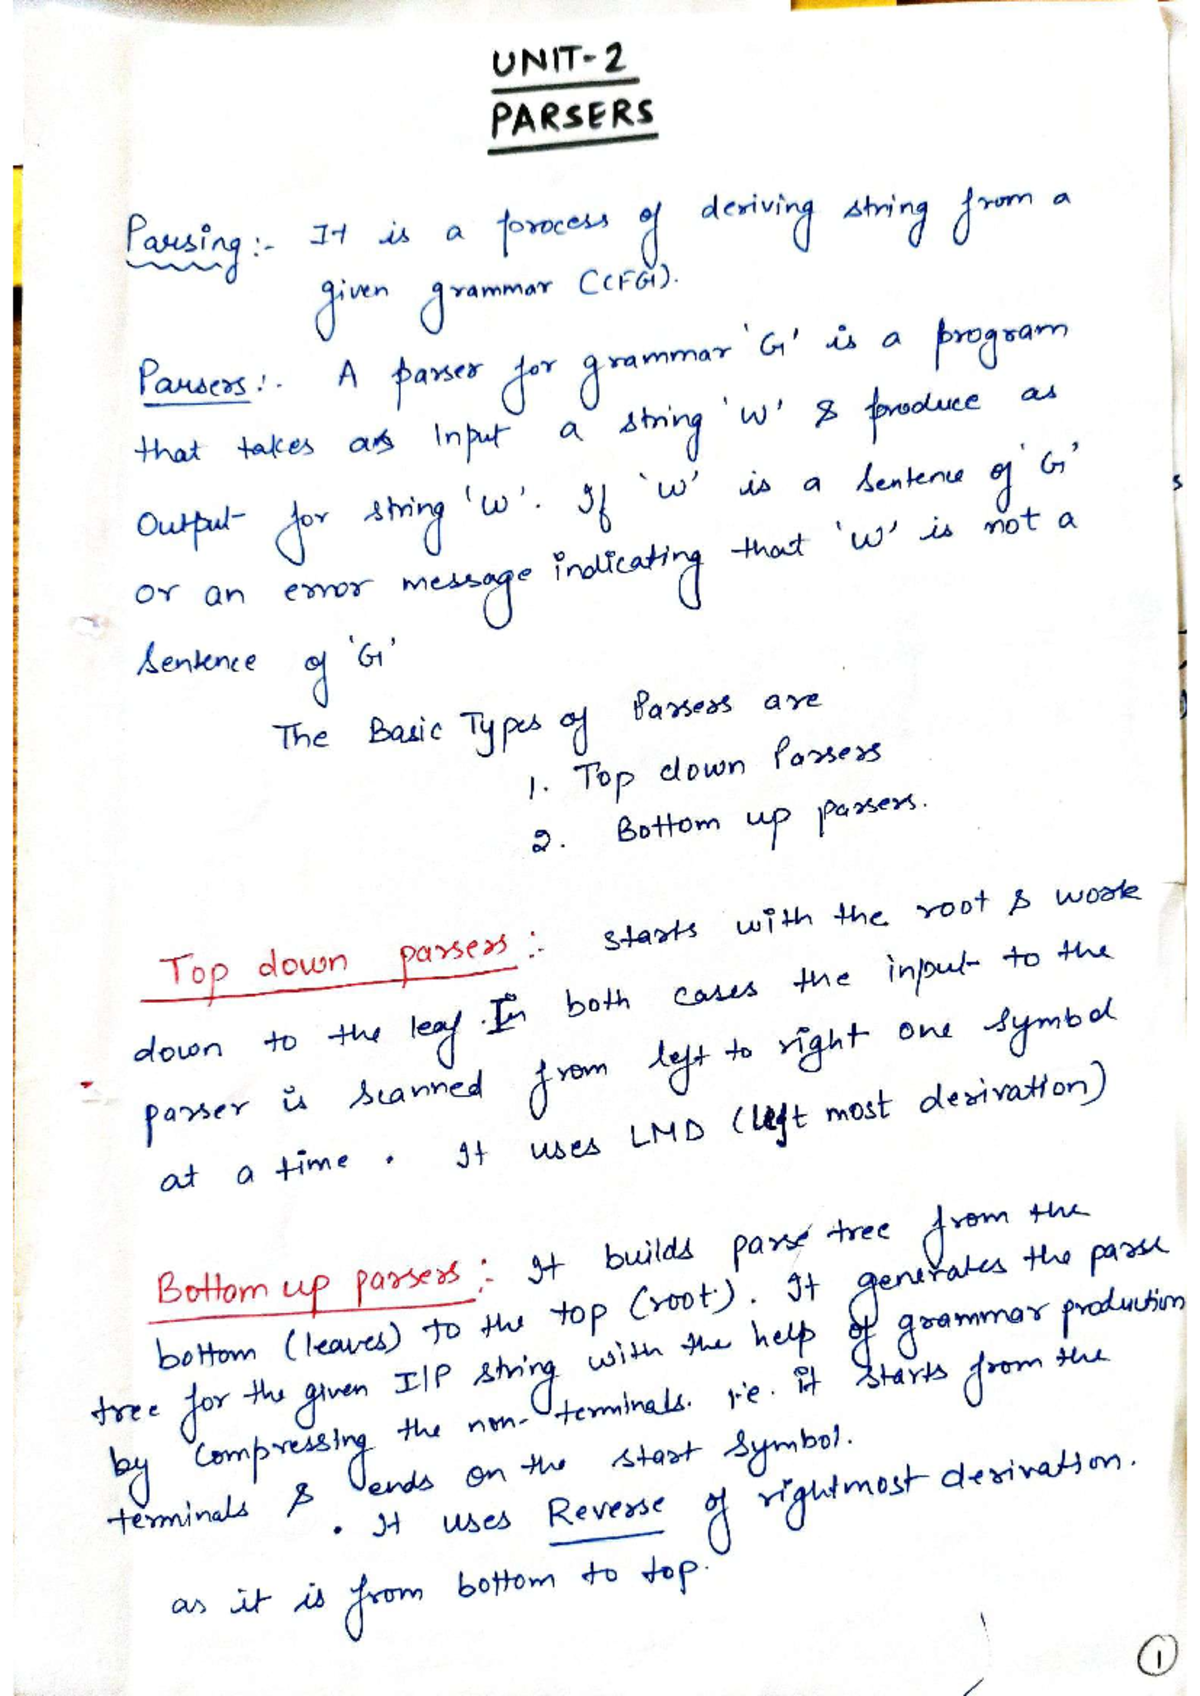 UNIT-2
PARSERS
Parsing:- It is a process of deriving string from a
given grammar (CFG).
Parsers:- A parser for grammar 'G' is a program
that takes as Input a string 'w' & produce as
Output for string 'w'. If 'w' is a sentence of 'G'
or an error message indicating that 'w' is not a
sentence of 'G'
The Basic Types of Parsers are
1. Top down Parsers
2. Bottom up parsers.
Top down parsers:- starts with the root & work
down to the leaf. In both cases the input to the
parser is scanned from left to right one symbol
at a time. It uses LMD (left most derivation)
Bottom up parsers:- It builds parse tree from the
bottom (leaves) to the top (root). It generates the parse
tree for the given I/P string with the help of grammar production
by compressing the non-terminals. i.e. it starts from the
terminals & ends on the start symbol.
. It uses Reverse of rightmost derivation.
as it is from bottom to top.
1